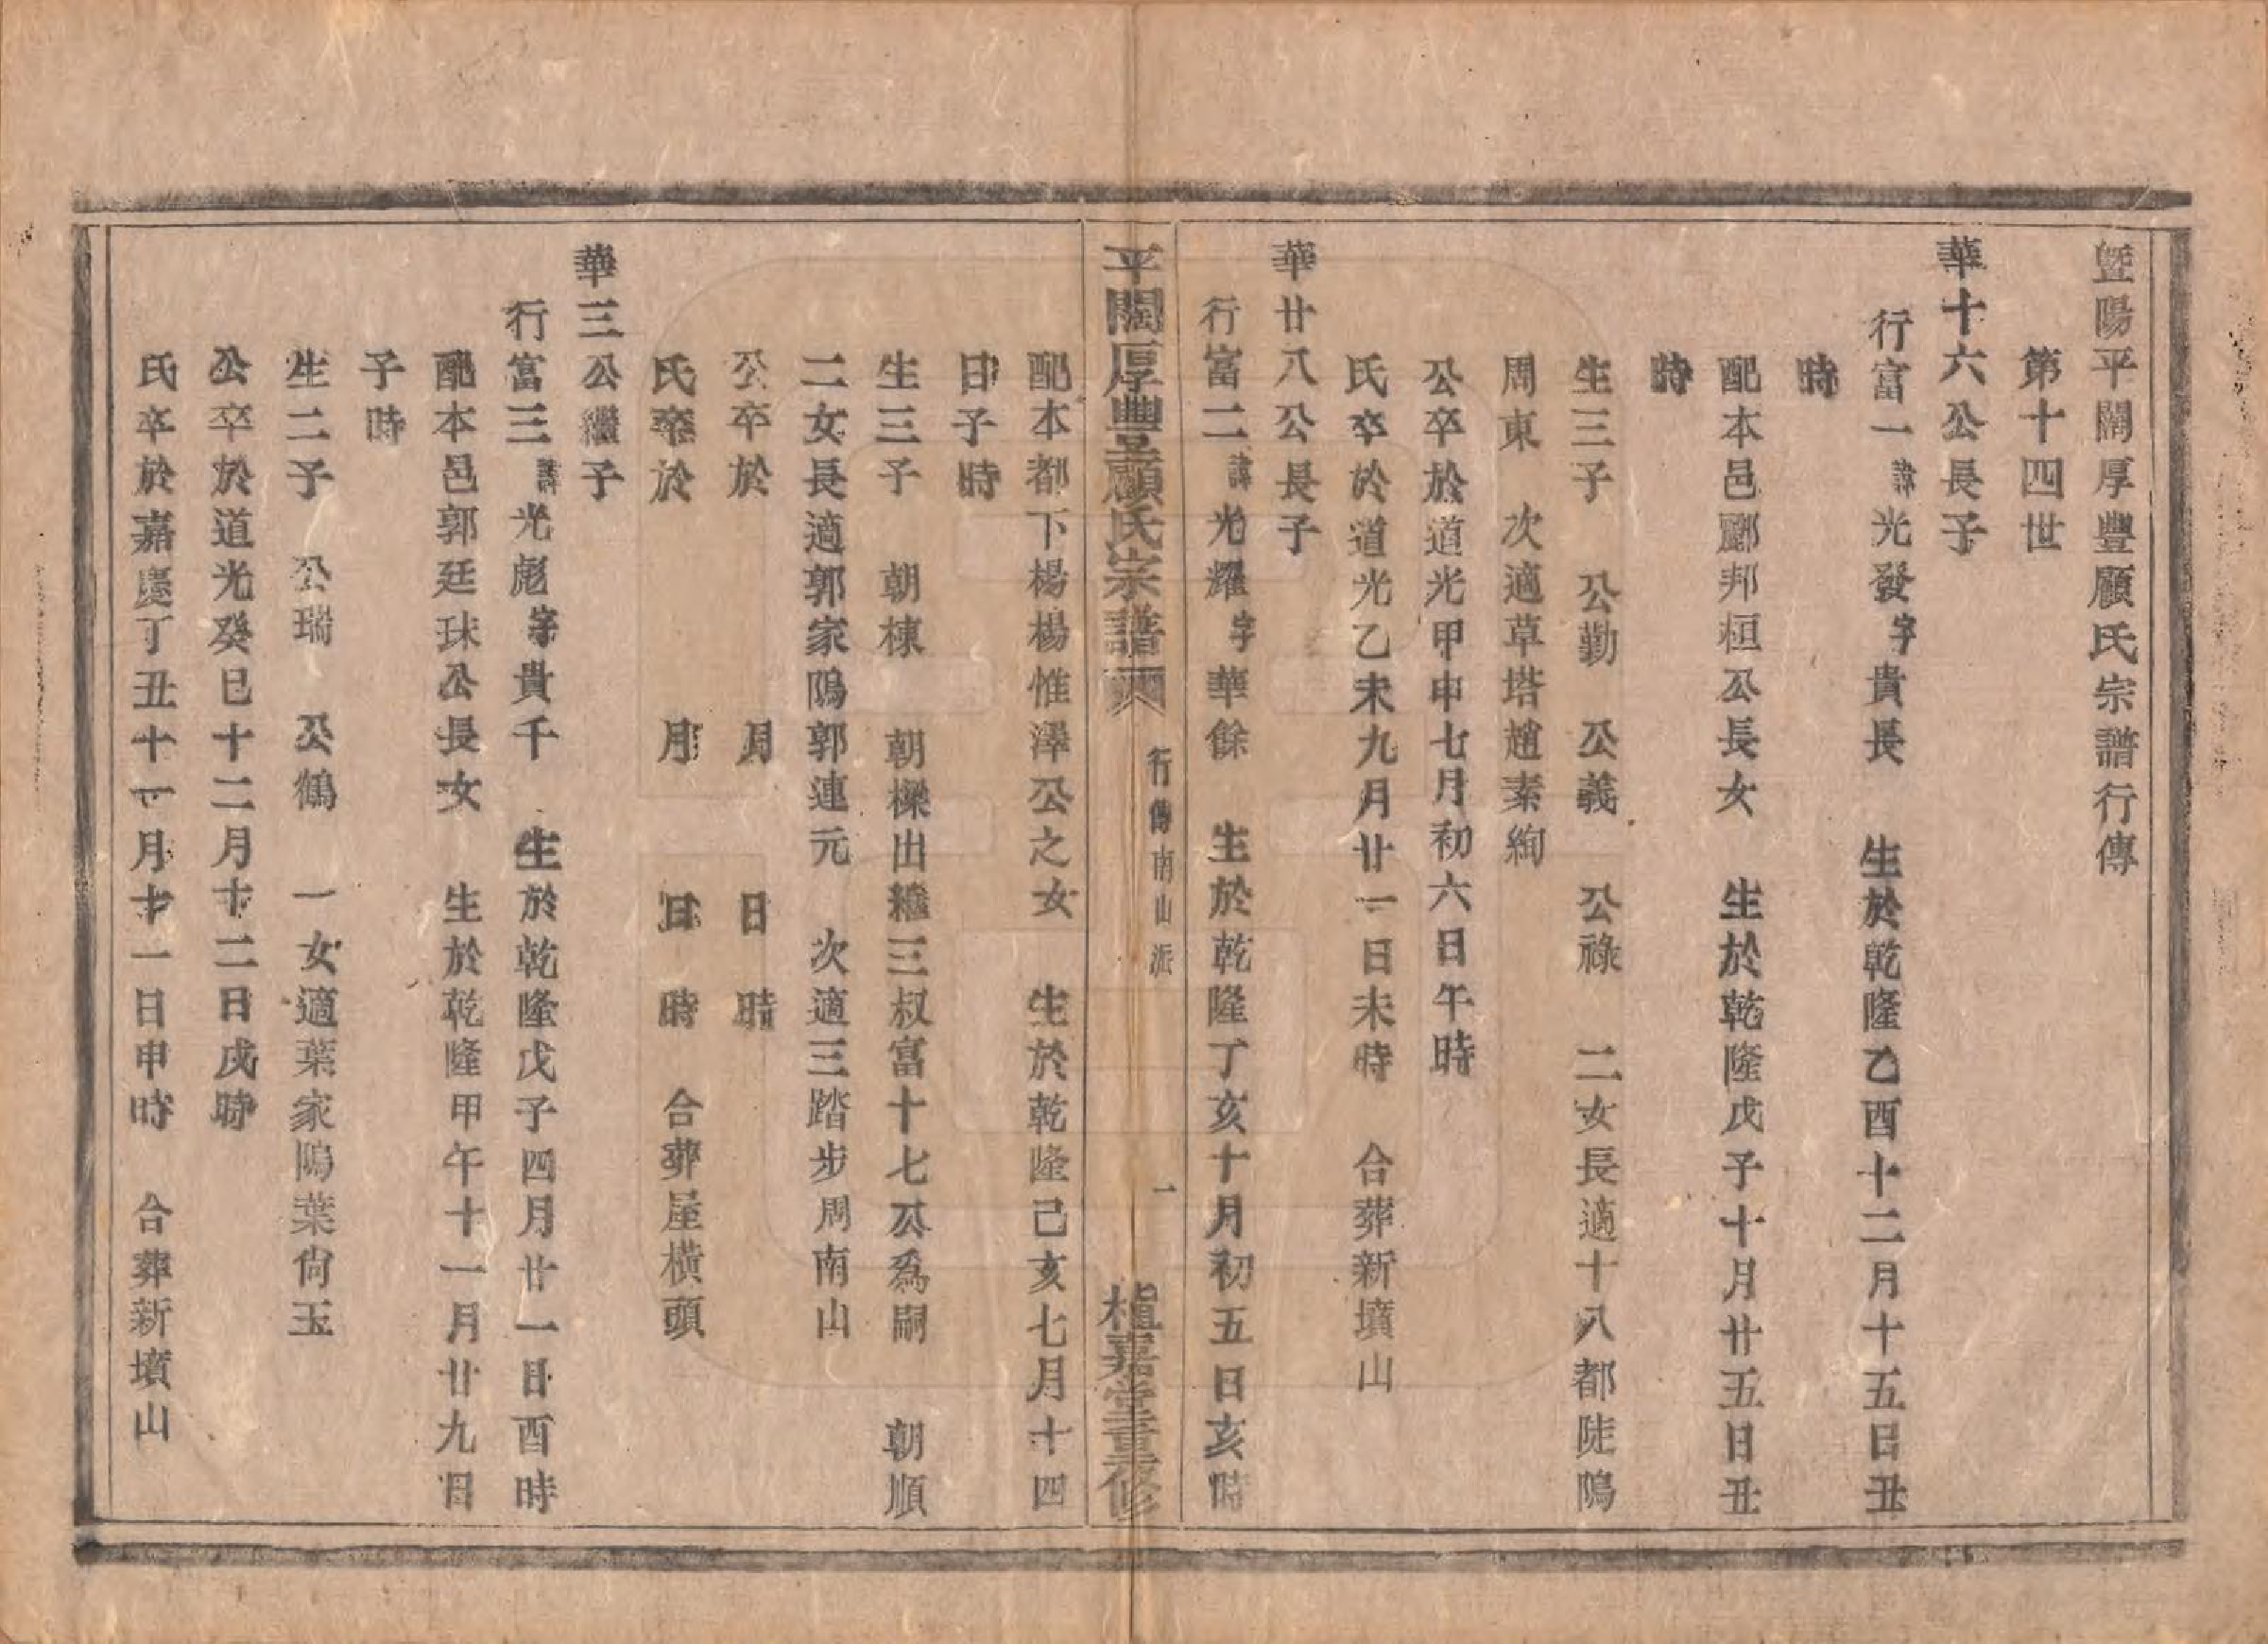 暨陽平闊厚豐顧氏宗譜行傳
第十四世
華十六公長子
行富一諱光發字貴長　生於乾隆乙酉十二月十五日丑
時
配本邑酈邦桓公長女　生於乾隆戊子十月廿五日丑
時
生三子　公勤　公義　公祿　二女長適十八都陡隝
周東　次適草塔趙素絢
公卒於道光甲申七月初六日午時
氏卒於道光乙未九月廿一日未時　合葬新墳山
華廿八公長子
行富二諱光耀字華餘　生於乾隆丁亥十月初五日亥時
平闊厚豐顧氏宗譜　行傳南山派　一　植嘉堂重修
配本都下楊楊惟澤公之女　生於乾隆己亥七月十四
日子時
生三子　朝棟　朝樑出繼三叔富十七公為嗣　朝順
二女長適郭家隝郭連元　次適三踏步周南山
公卒於　月　日　時
氏卒於　月　日　時　合葬屋橫頭
華三公繼子
行富三諱光彪字貴千　生於乾隆戊子四月廿一日酉時
配本邑郭廷珠公長女　生於乾隆甲午十一月廿九日
子時
生二子　公瑞　公鶴　一女適葉家隝葉尙玉
公卒於道光癸巳十二月十二日戌時
氏卒於嘉慶丁丑十一月十一日申時　合葬新墳山